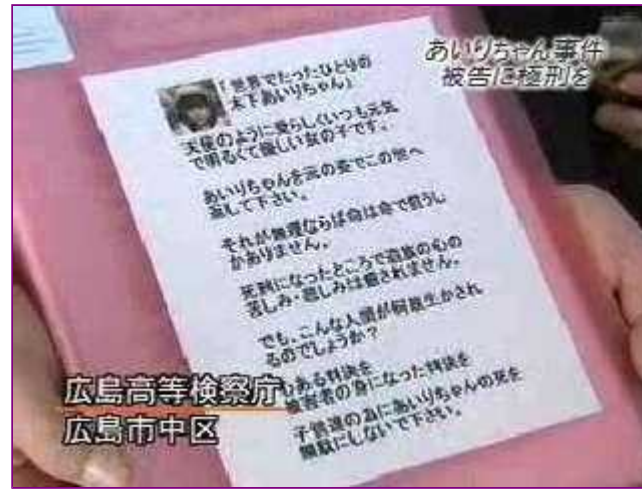 あいりちゃん事件
被告に極刑を
「世界でたったひとりの
木下あいりちゃん」
天使のように愛らしくいつも元気
で明るくて優しい女の子です。
あいりちゃんを元の姿でこの世へ
返して下さい。
それが無理ならば命は命で償うし
かありません。
死刑になったところで遺族の心の
苦しみ・悲しみは癒されません。
でも、こんな人間が何故生かされ
るのでしょうか?
ある判決を
被害者の身になった判決を
子供達の為にあいりちゃんの死を
無駄にしないで下さい。
広島高等検察庁
広島市中区